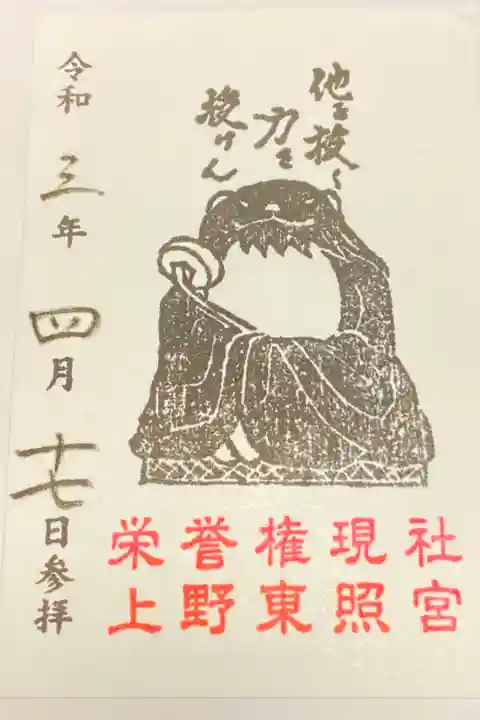 他を抜く
力を
授けん
栄誉権現社
上野東照宮
令和三年四月十七日参拝